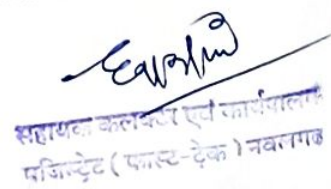 सहायक कलक्टर एवं कार्यपालक
मजिस्ट्रेट ( फास्ट-ट्रेक ) नवलगढ